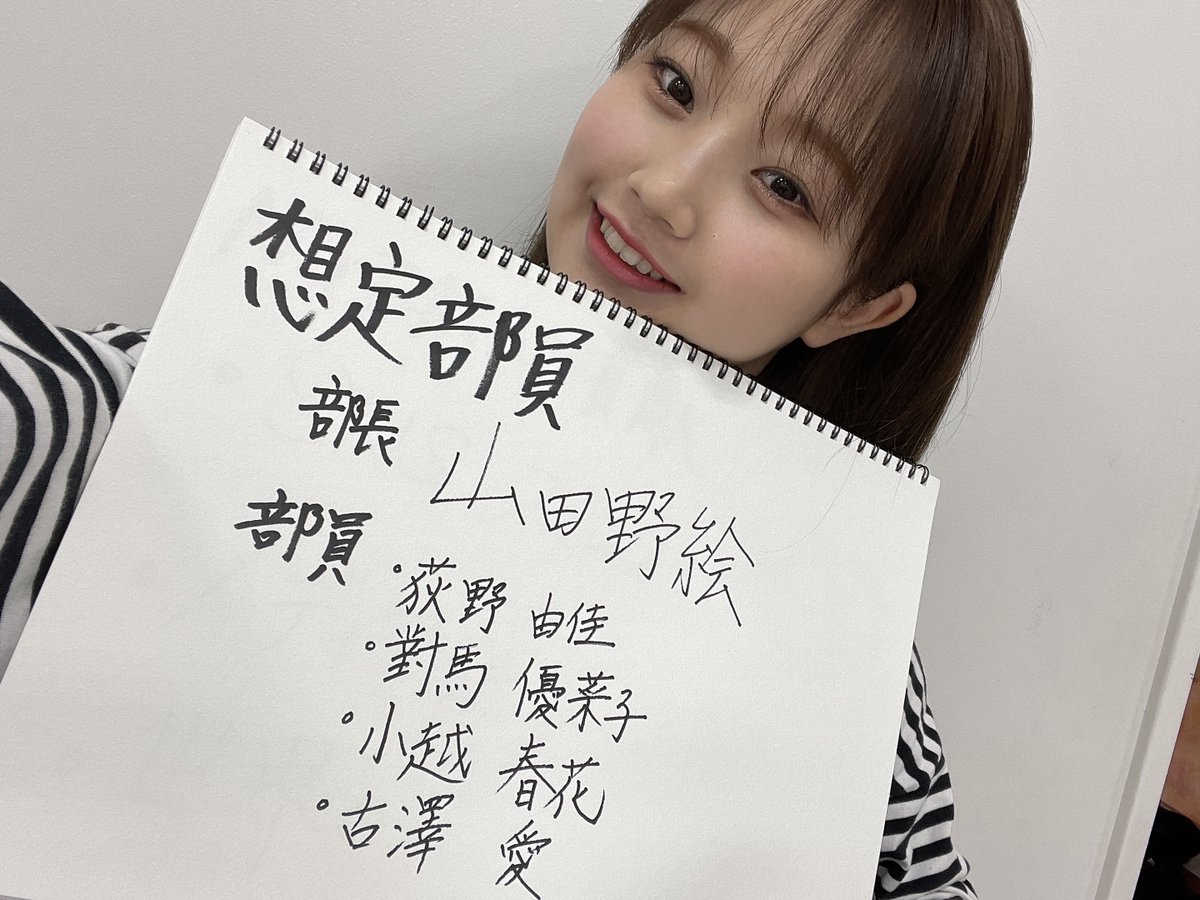 想定部員
部長 山田野絵
部員
・荻野 由佳
・對馬 優菜子
・小越 春花
・古澤 愛